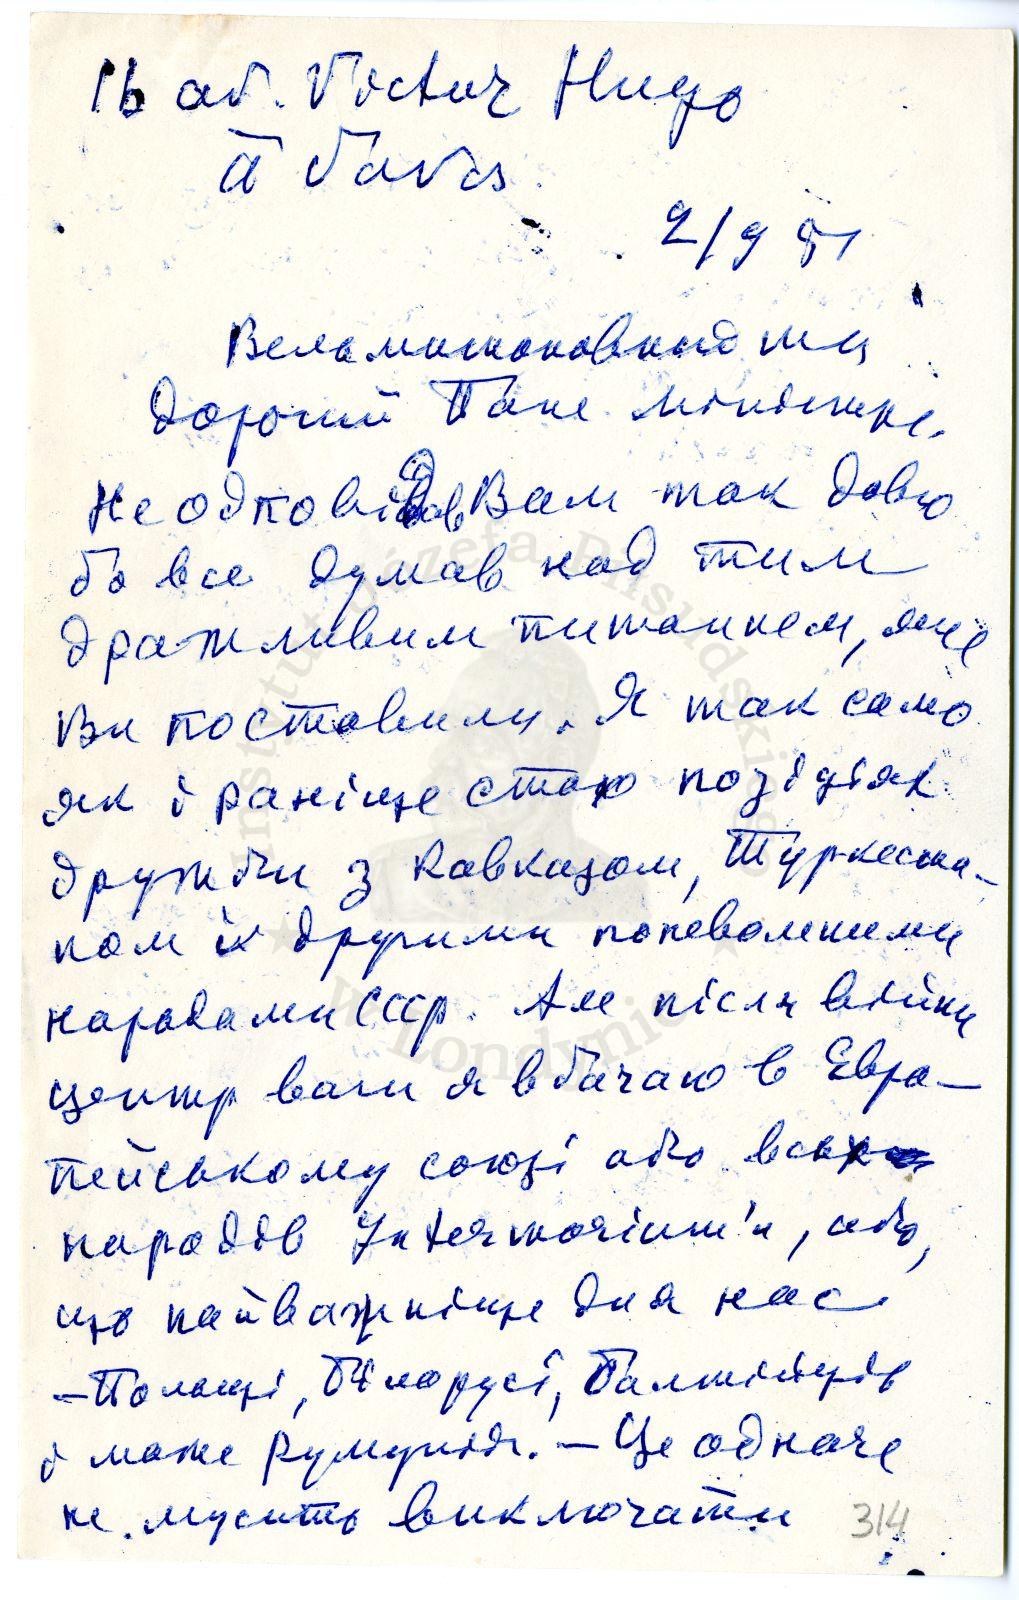 16 av. Victor Hugo
à Paris
2/9 51
Вельмишановний та
Дорогий Пане Міністре.
Не одповідав Вам так довго
бо все думав над тим
дражливим питанням, яке
Ви поставили. Я так само
як і раніше стою позіціях
дружби з Кавказом, Туркеста-
ном і другими поневоленими
народами СССР. Але після війни
центр ваги я вбачаю в Евро-
пейському союзі або всіх
народів Intermarium'а, або,
що найважніще для нас
– Польщі, Білорусі, Балтійців
і може Румунії. – Це одначе
не мусить виключати
314
Instytut Józefa Piłsudskiego
w Londynie